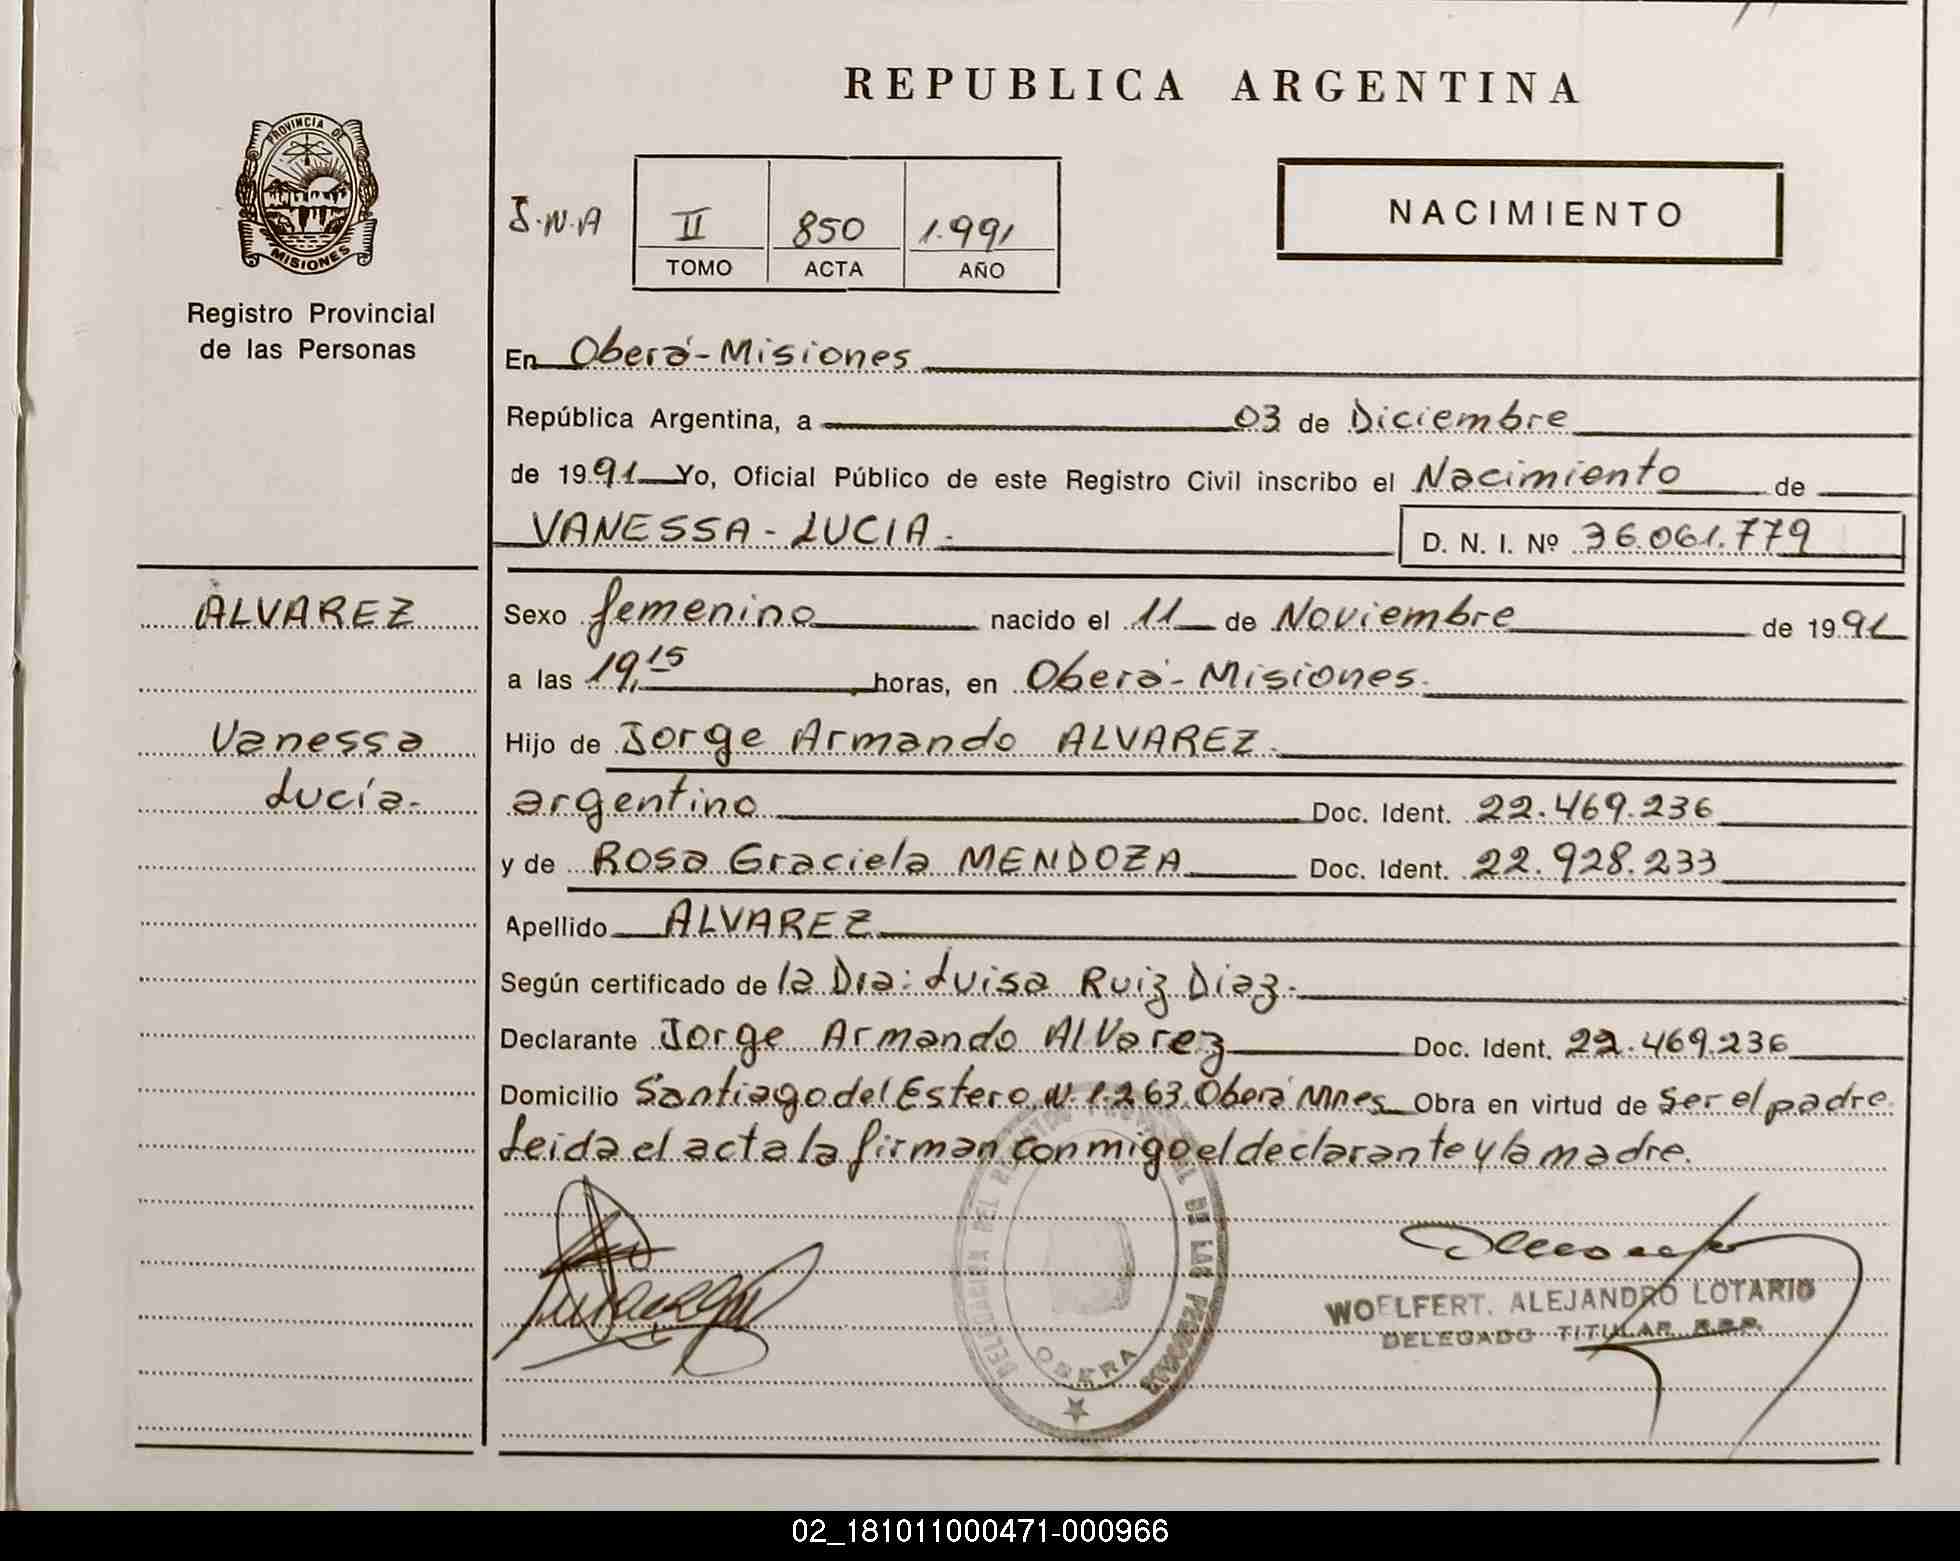 REPUBLICA ARGENTINA
PROVINCIA DE
MISIONES
Registro Provincial
de las Personas
J.N.A
II 850 1.991
TOMO ACTA AÑO
NACIMIENTO
En Oberá-Misiones
República Argentina, a 03 de Diciembre
de 1991 Yo, Oficial Público de este Registro Civil inscribo el Nacimiento de
VANESSA-LUCIA.
D. N. I. Nº 36.061.779
ALVAREZ
Vanessa
Lucía.
Sexo femenino nacido el 11 de Noviembre de 1991
a las 19,15 horas, en Oberá-Misiones.
Hijo de Jorge Armando ALVAREZ.
argentino Doc. Ident. 22.469.236
y de Rosa Graciela MENDOZA Doc. Ident. 22.928.233
Apellido ALVAREZ
Según certificado de la Dra: Luisa Ruiz Diaz.
Declarante Jorge Armando Alvarez Doc. Ident. 22.469.236
Domicilio Santiago del Estero N. 1.263 Oberá Mnes Obra en virtud de ser el padre.
Leida el acta la firman conmigo el declarante y la madre.
DELEGACION DEL DE LAS PERSONAS
OBERA
WOELFERT. ALEJANDRO LOTARIO
DELEGADO TITULAR R.P.P.
02_181011000471-000966